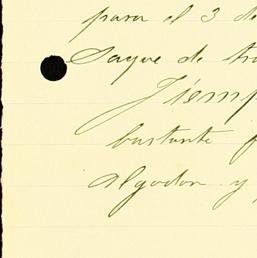 para el 3 de
Saque de tra
Tiemp
bastante f
algodon y